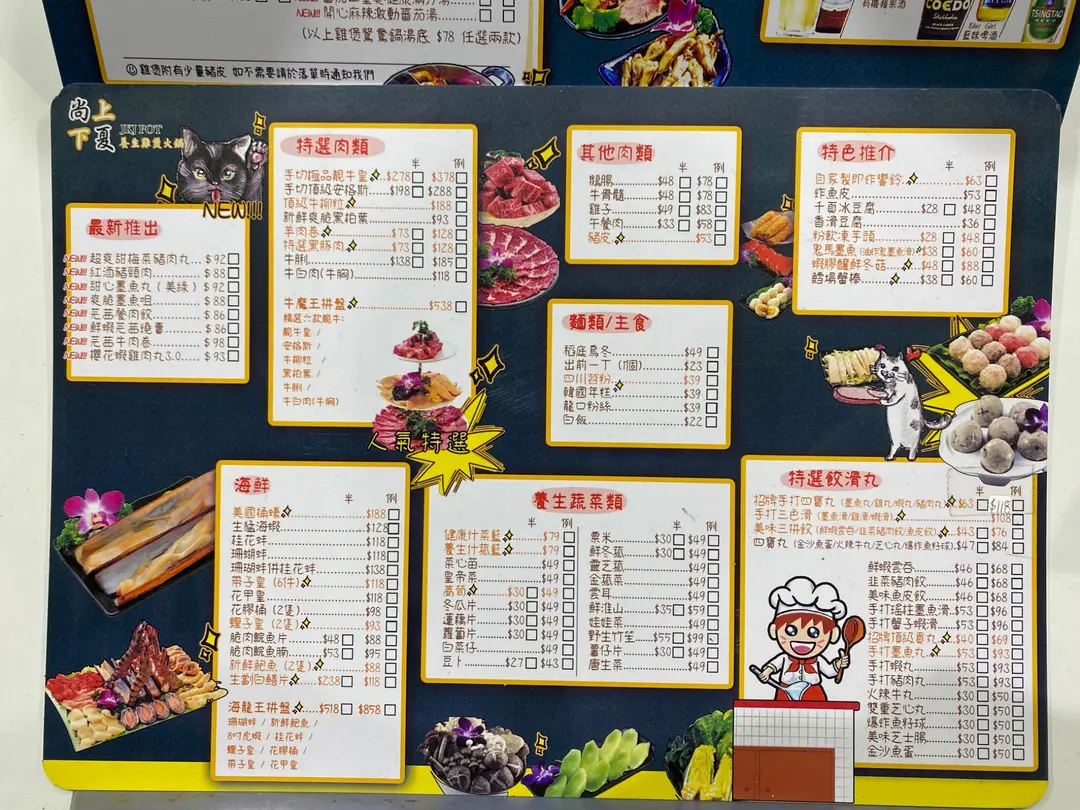 NEW!! 開心麻辣激動番茄湯
(以上雞煲鴛鴦鍋湯底 $78 任選兩款)
雞煲附有少量豬皮 如不需要請於落單時通知我們
有機蘋果酒
COEDO
藍妹啤酒
TSINGTAO
尚上
下夏
JKJ POT
養生雞煲火鍋
NEW!!!
最新推出
NEW!! 超爽甜梅菜豬肉丸 $92
NEW!! 紅酒豬頸肉 $88
NEW!! 甜心墨魚丸(美綠) $92
NEW!! 爽脆墨魚咀 $88
NEW!! 芫茜餐肉餃 $86
NEW!! 鮮蝦芫茜燒賣 $86
NEW!! 芫茜牛肉卷 $98
NEW!! 櫻花蝦雞肉丸3.0 $93
特選肉類
半 例
手切極品靚牛皇 $278 $378
手切頂級安格斯 $198 $288
頂級牛柳粒 $188
新鮮爽脆黑柏葉 $93
羊肉卷 $73 $128
特選黑豚肉 $73 $128
牛脷 $138 $185
牛白肉(牛胸) $118
牛魔王拼盤 $538
精選六款靚牛:
靚牛皇 /
安格斯 /
牛柳粒 /
黑柏葉 /
牛脷 /
牛白肉(牛胸)
人氣特選
其他肉類
半 例
鵝腸 $48 $78
牛骨髓 $48 $78
雞子 $49 $83
午餐肉 $33 $58
豬皮 $53
特色推介
半 例
自家製即炸響鈴 $63
炸魚皮 $53
千面冰豆腐 $28 $48
香滑豆腐 $36
粉軟凍芋頭 $28 $48
鬼馬墨魚(油炸鬼墨魚滑) $38 $60
蝦膠釀鮮冬菇 $48 $88
鱈場蟹捧 $38 $60
麵類/主食
稻庭烏冬 $49
出前一丁 (1個) $23
四川苕粉 $39
韓國年糕 $39
龍口粉絲 $39
白飯 $22
海鮮
半 例
美國桶蠔 $188
生猛海蝦 $128
桂花蚌 $118
珊瑚蚌 $118
珊瑚蚌併桂花蚌 $138
帶子皇 (6件) $118
花甲皇 $118
花膠桶 (2隻) $98
蟶子皇 (2隻) $93
脆肉鯇魚片 $48 $88
脆肉鯇魚腩 $53 $95
新鮮鮑魚 (2隻) $88
生劏白鱔片 $238 $118
海龍王拼盤 $518 $858
珊瑚蚌 / 新鮮鮑魚 /
8吋虎蝦 / 桂花蚌 /
蟶子皇 / 花膠桶 /
帶子皇 / 花甲皇
養生蔬菜類
半 例
健康什菜籃 $79
養生什菰籃 $79
菜心苗 $49
皇帝菜 $49
萵筍 $30 $49
冬瓜片 $30 $49
蓮藕片 $30 $49
蘿蔔片 $30 $49
白菜仔 $49
豆卜 $27 $43
半 例
粟米 $30 $49
鮮冬菰 $30 $49
靈芝菰 $49
金菰菜 $49
雲耳 $49
鮮淮山 $35 $59
娃娃菜 $49
野生竹笙 $55 $99
薯仔片 $30 $49
唐生菜 $49
特選餃滑丸
半 例
招牌手打四寶丸 (墨魚丸/雞丸/蝦丸/豬肉丸) $63 $118
手打三色滑 (墨魚滑/雞滑/蝦滑) $108
美味三拼餃 (鮮蝦雲吞/韭菜豬肉餃/魚皮餃) $43 $76
四寶丸 (金沙魚蛋/火辣牛丸/芝心丸/爆炸魚籽球) $47 $84
鮮蝦雲吞 $46 $68
韭菜豬肉餃 $46 $68
美味魚皮餃 $46 $68
手打瑤柱墨魚滑 $53 $96
手打蟹子蝦滑 $53 $96
招牌頂級貢丸 $40 $69
手打墨魚丸 $53 $93
手打蝦丸 $53 $93
手打豬肉丸 $53 $93
火辣牛丸 $30 $50
雙重芝心丸 $30 $50
爆炸魚籽球 $30 $50
美味芝士腸 $30 $50
金沙魚蛋 $30 $50